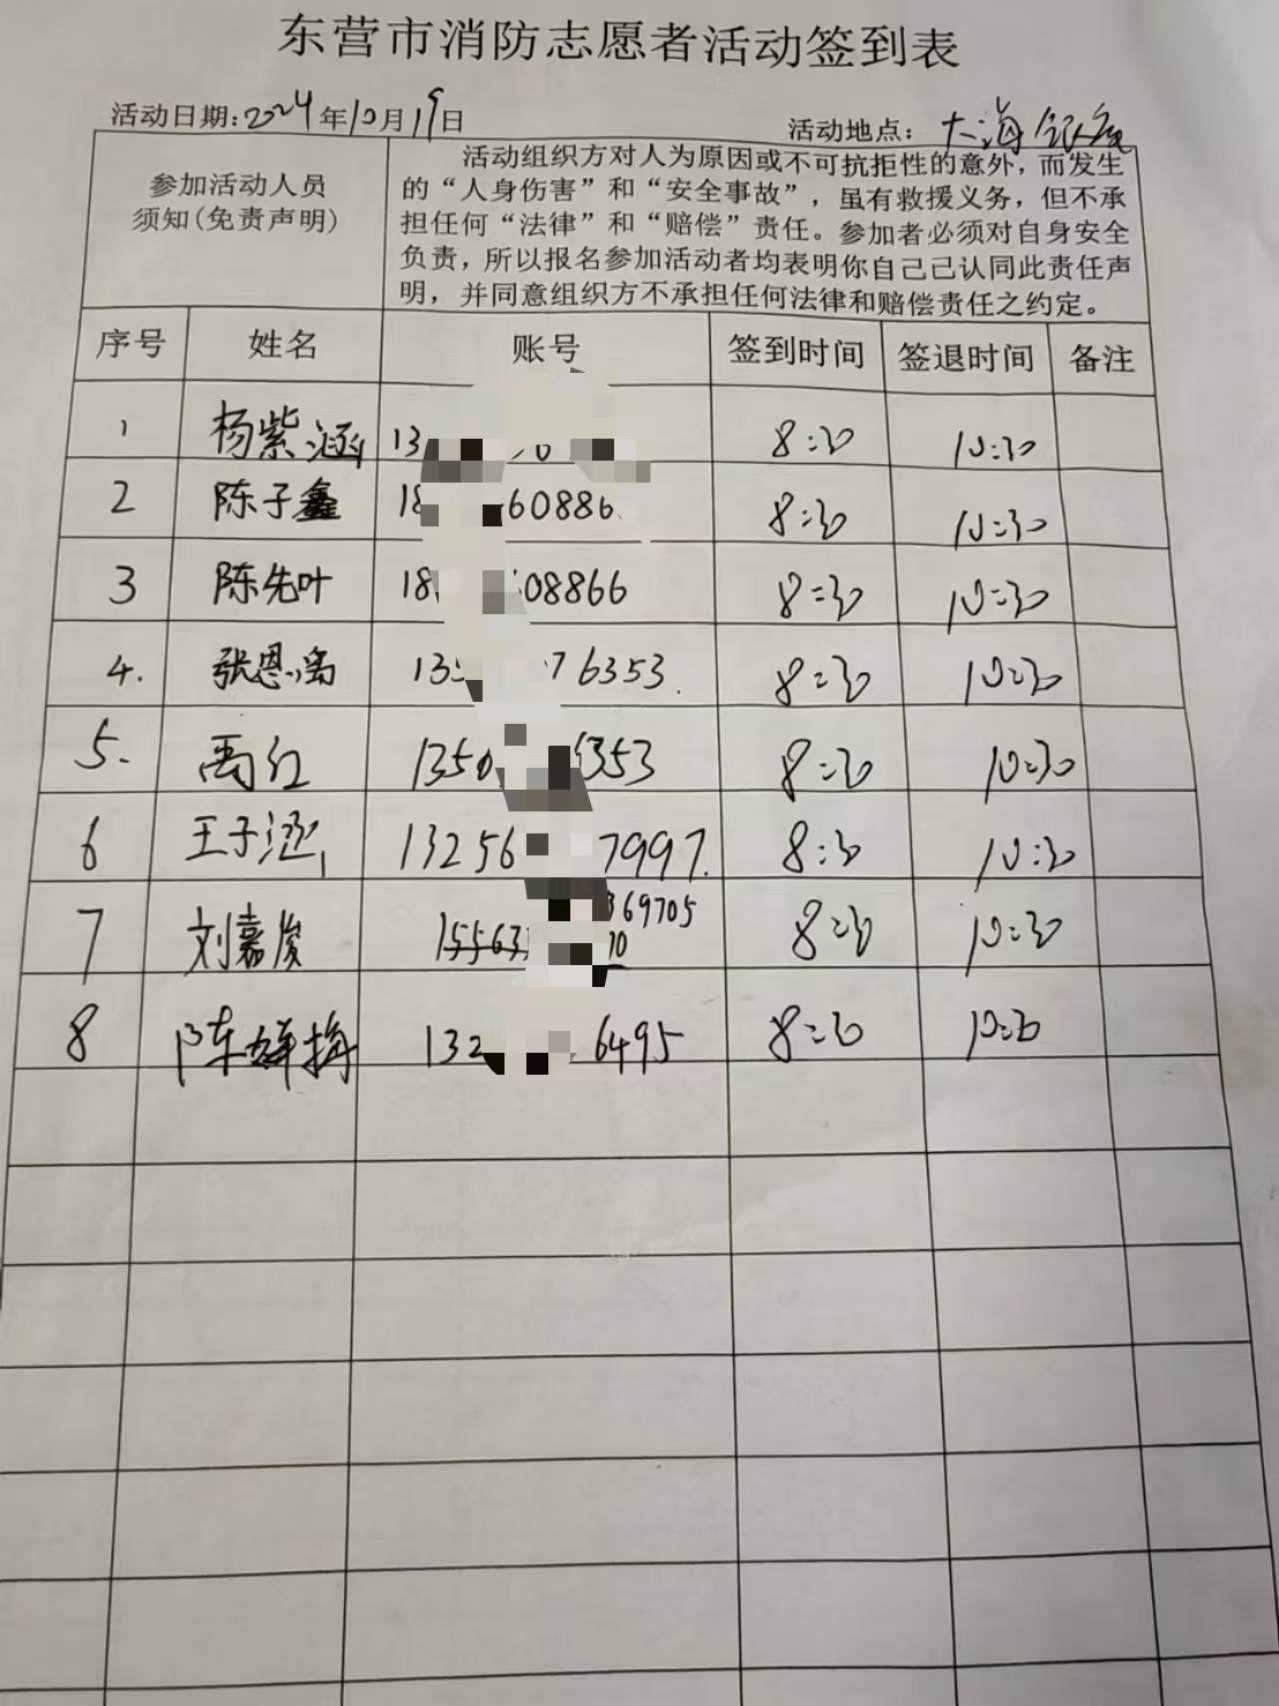 东营市消防志愿者活动签到表
活动日期:2024年10月19日 活动地点: 大海银座
参加活动人员
须知(免责声明)
活动组织方对人为原因或不可抗拒性的意外，而发生
的“人身伤害”和“安全事故”，虽有救援义务，但不承
担任何“法律”和“赔偿”责任。参加者必须对自身安全
负责，所以报名参加活动者均表明你自己已认同此责任声
明，并同意组织方不承担任何法律和赔偿责任之约定。
序号 姓名 账号 签到时间 签退时间 备注
1 杨紫涵 13 8:30 10:30
2 陈子鑫 18 60886 8:30 10:30
3 陈先叶 18 08866 8:30 10:30
4. 张恩禹 13 76353. 8:30 10:30
5. 禹红 1350 353 8:30 10:30
6 王子涵 13256 7997. 8:30 10:30
369705
7 刘嘉俊 15563 70 8:30 10:30
8 陈 梅 132 6495 8:30 10:30